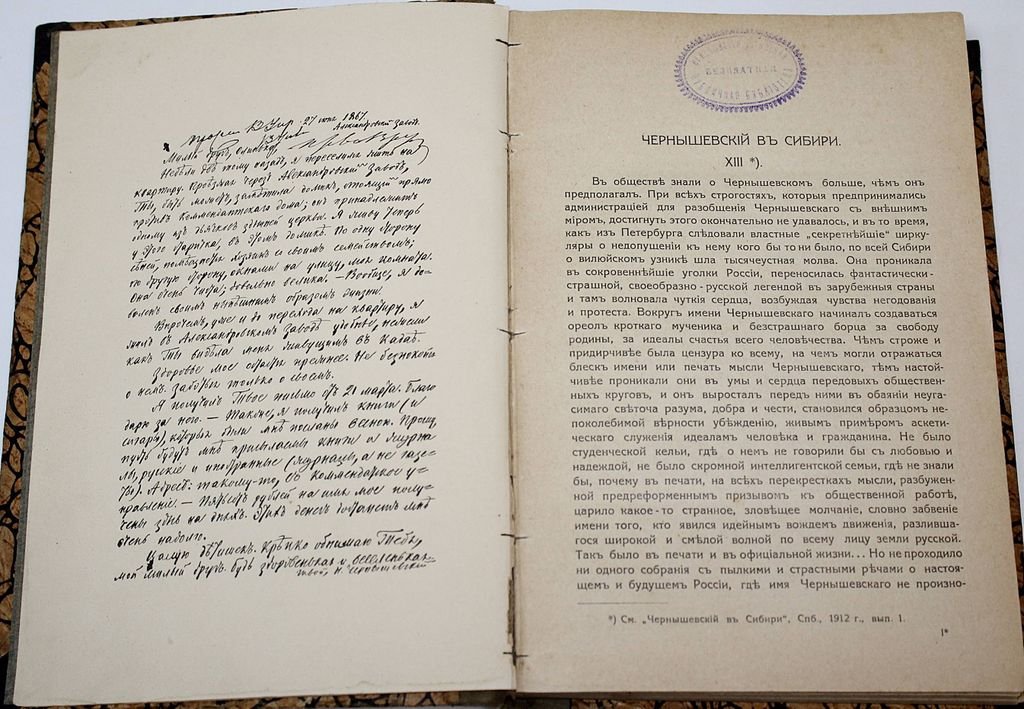 27 июня 1867.
Александровскій Заводъ.
Милый другъ,
Недѣли двѣ тому назадъ, я переселился жить на
квартиру. Проѣзжая черезъ Александровскій Заводъ,
Ты, быть можетъ, замѣтила домикъ, стоящій прямо
противъ Коммендантскаго дома; онъ принадлежитъ
одному изъ дьячковъ здѣшней церкви. Я живу теперь
у этого старичка, въ этомъ домикѣ. По одну сторону
сѣней, помѣщается хозяинъ со своимъ семействомъ;
по другую сторону, окнами на улицу, моя комната.
Она очень чиста; довольно велика. — Вообще, я до-
воленъ своимъ нынѣшнимъ образомъ жизни.
Впрочемъ, уже и до перехода на квартиру, я
жилъ въ Александровскомъ Заводѣ удобнѣе, нежели
какъ Ты видѣла меня живущимъ въ Кадаѣ.
Здоровье мое остается прежнее. Не безпокойся
о немъ. Заботься только о своемъ.
Я получилъ Твое письмо отъ 21 марта. Благо-
дарю за него. — Также, я получилъ книги (и
сигары), которыя были мнѣ посланы весною. Прошу,
пусть будутъ мнѣ присылаемы книги и журна-
лы, русскіе и иностранные (журналы, а не газе-
ты). Адресъ: такому-то, въ Коммендантское у-
правленіе. — Пятьсотъ рублей на имя мое полу-
чены здѣсь на дняхъ. Этихъ денегъ достанетъ мнѣ
очень надолго.
Цалую дѣтишекъ. Крѣпко обнимаю Тебя,
мой милый другъ. Будь здоровенькая и веселенькая.
Твой Н. Чернышевскій
БЕЗПЛАТНАЯ
ЧЕРНЫШЕВСКІЙ ВЪ СИБИРИ.
XIII *).
Въ обществѣ знали о Чернышевскомъ больше, чѣмъ онъ
предполагалъ. При всѣхъ строгостяхъ, которыя предпринимались
администраціей для разобщенія Чернышевскаго съ внѣшнимъ
міромъ, достигнуть этого окончательно не удавалось, и въ то время,
какъ изъ Петербурга слѣдовали властные „секретнѣйшіе“ цирку-
ляры о недопущеніи къ нему кого бы то ни было, по всей Сибири
о вилюйскомъ узникѣ шла тысячеустная молва. Она проникала
въ сокровеннѣйшіе уголки Россіи, переносилась фантастически-
страшной, своеобразно-русской легендой въ зарубежныя страны
и тамъ волновала чуткія сердца, возбуждая чувства негодованія
и протеста. Вокругъ имени Чернышевскаго начиналъ создаваться
ореолъ кроткаго мученика и безстрашнаго борца за свободу
родины, за идеалы счастья всего человѣчества. Чѣмъ строже и
придирчивѣе была цензура ко всему, на чемъ могли отражаться
блескъ имени или печать мысли Чернышевскаго, тѣмъ настой-
чивѣе проникали они въ умы и сердца передовыхъ обществен-
ныхъ круговъ, и онъ выросталъ передъ ними въ обаяніи неуга-
симаго свѣточа разума, добра и чести, становился образцомъ не-
поколебимой вѣрности убѣжденію, живымъ примѣромъ аскети-
ческаго служенія идеаламъ человѣка и гражданина. Не было
студенческой кельи, гдѣ о немъ не говорили бы съ любовью и
надеждой, не было скромной интеллигентской семьи, гдѣ не знали
бы, почему въ печати, на всѣхъ перекресткахъ мысли, разбужен-
ной предреформеннымъ призывомъ къ общественной работѣ,
царило какое-то странное, зловѣщее молчаніе, словно забвеніе
имени того, кто явился идейнымъ вождемъ движенія, разливша-
гося широкой и смѣлой волной по всему лицу земли русской.
Такъ было въ печати и въ офиціальной жизни... Но не проходило
ни одного собранія съ пылкими и страстными рѣчами о настоя-
щемъ и будущемъ Россіи, гдѣ имя Чернышевскаго не произно-
*) См. „Чернышевскій въ Сибири“, Спб., 1912 г., вып. 1.
1*